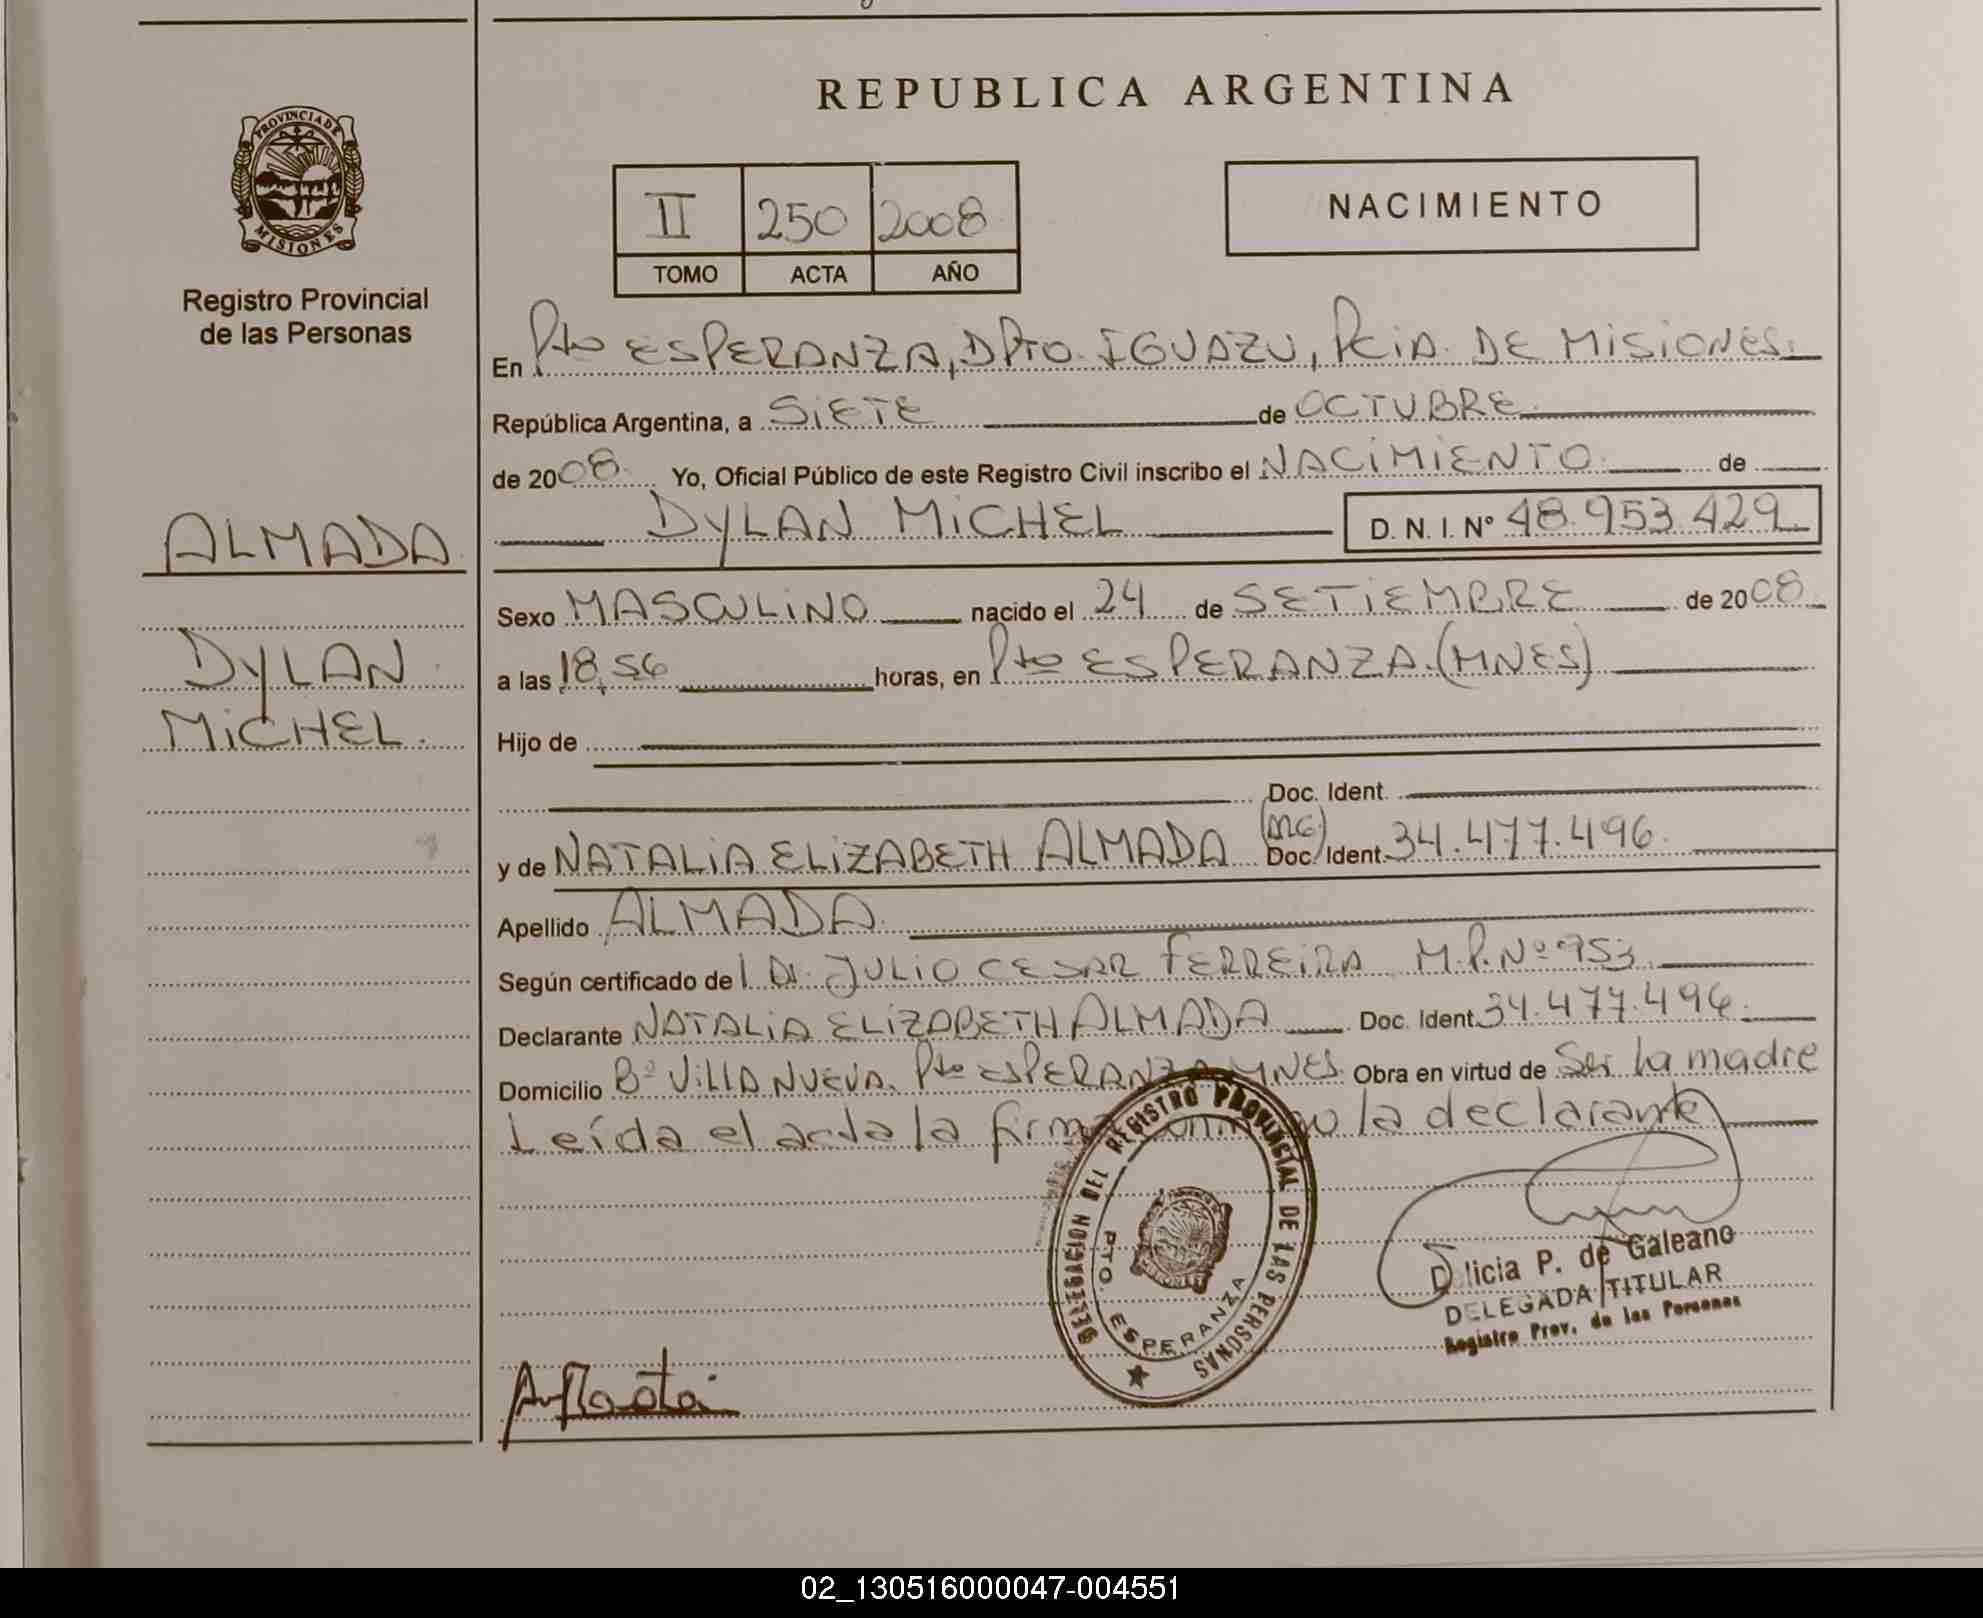 REPUBLICA ARGENTINA
PROVINCIA DE
MISIONES
Registro Provincial
de las Personas
II 250 2008
TOMO ACTA AÑO
NACIMIENTO
En Pto ESPERANZA, DPTO. IGUAZU, PCIA. DE MISIONES.
República Argentina, a SIETE de OCTUBRE
de 2008. Yo, Oficial Público de este Registro Civil inscribo el NACIMIENTO de
DYLAN MICHEL D. N. I. Nº 48.953.429
ALMADA
DYLAN
MICHEL.
Sexo MASCULINO nacido el 24 de SETIEMBRE de 2008.
a las 18,56 horas, en Pto ESPERANZA.(MNES)
Hijo de
Doc. Ident.
y de NATALIA ELIZABETH ALMADA Doc. Ident. 34.477.496.
Apellido ALMADA.
Según certificado de l Dr. JULIO CESAR FERREIRA M.P. Nº 953.
Declarante NATALIA ELIZABETH ALMADA Doc. Ident. 34.477.496.
Domicilio Bº VILLA NUEVA. Pto ESPERANZA MNES. Obra en virtud de Ser la madre
Leída el acta la firma la declarante
DELEGACION DEL REGISTRO PROVINCIAL DE LAS PERSONAS
PTO. ESPERANZA
licia P. de Galeano
DELEGADA TITULAR
Registro Prov. de las Personas
02_130516000047-004551